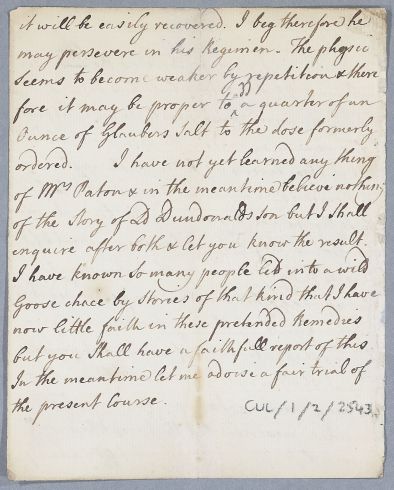 it will be easily recovered. I beg therefore he
may persevere in his Regimen. The physic
seems to become weaker by repetition & there
fore it may be proper to add a quarter of an
Ounce of Glaubers Salt to the dose formerly
ordered. I have not yet learned any thing
of Mrs Paton & in the meantime believe nothing
of the Story of Ld Dundonalds son but I shall
enquire after both & let you know the result.
I have known so many people led into a wild
Goose chace by Stories of that kind that I have
now little faith in these pretended Remedies
but you shall have a faithfull report of this
In the meantime let me advise a fair trial of
the present Course.
CUL/1/2/2543